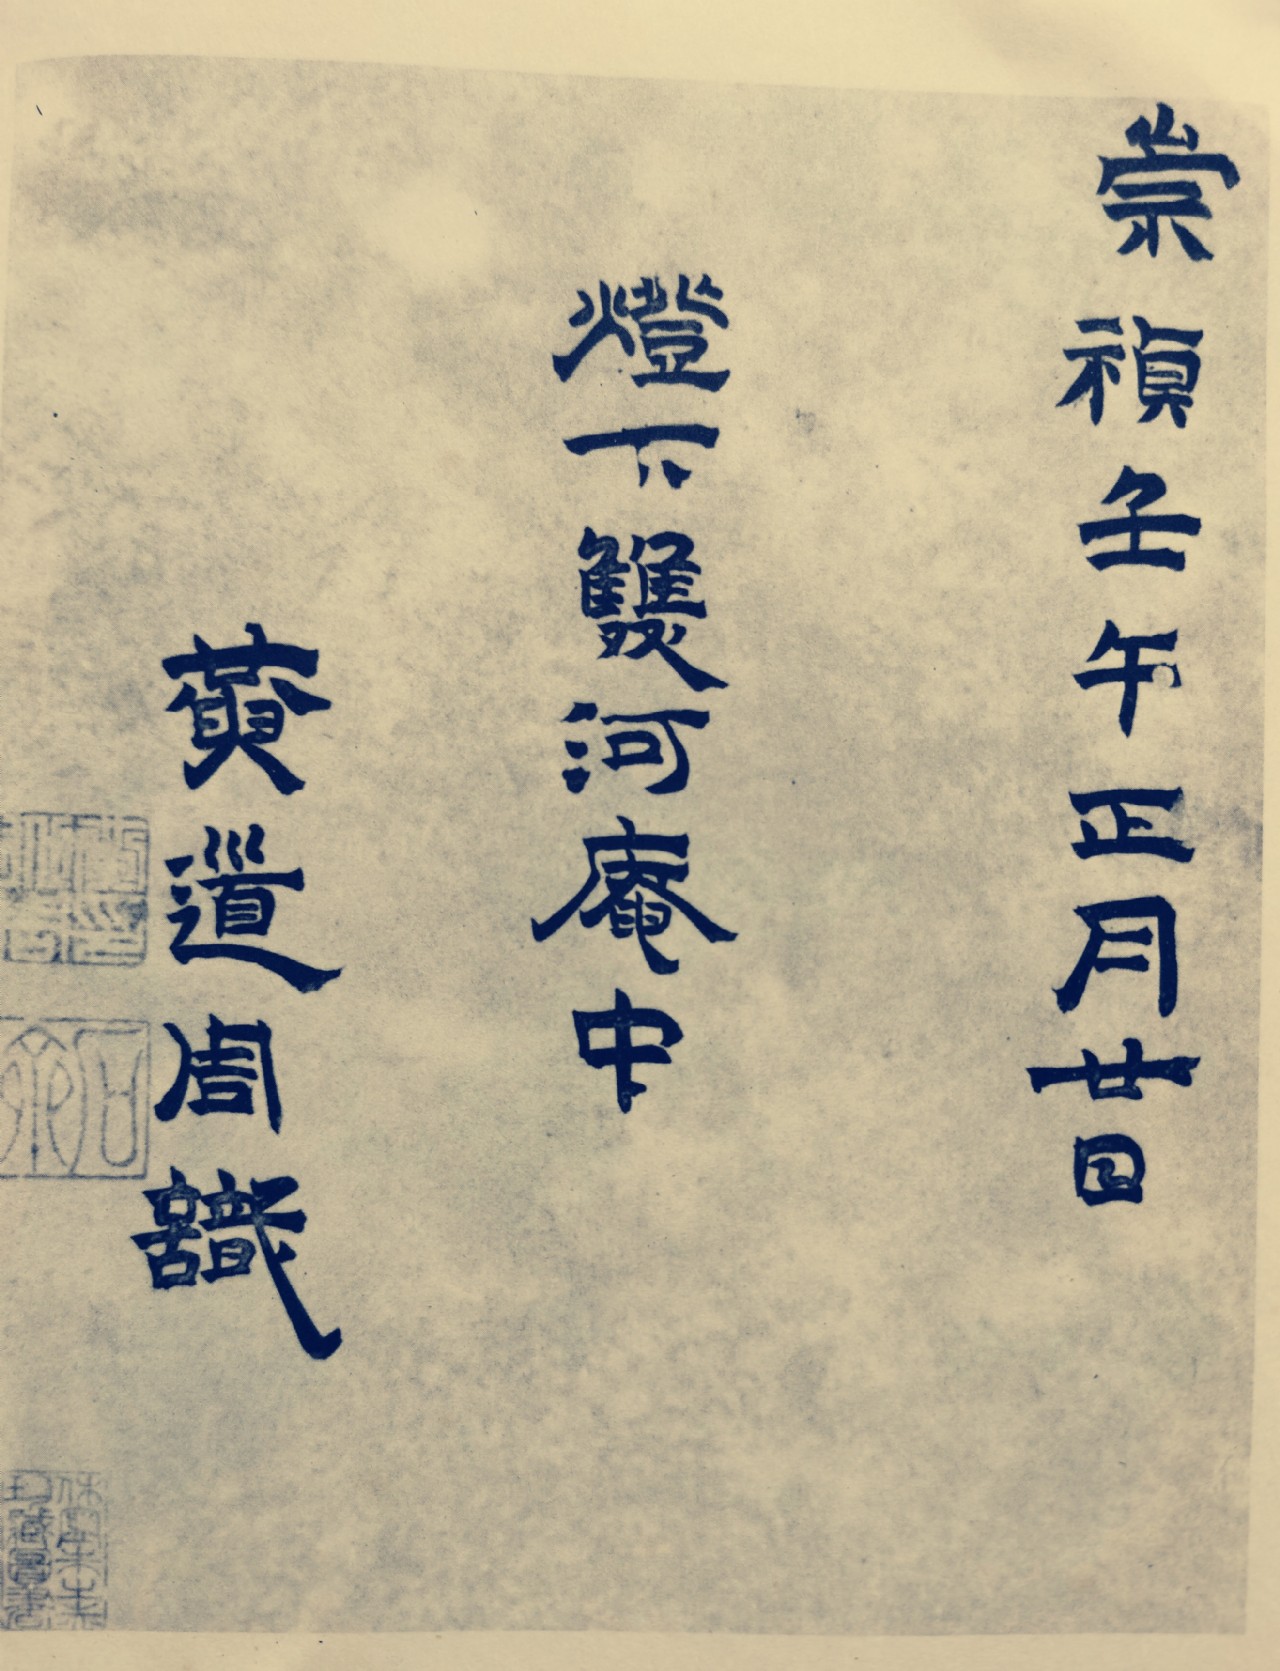 崇禎壬午正月廿日
燈下雙河庵中
黃道周識